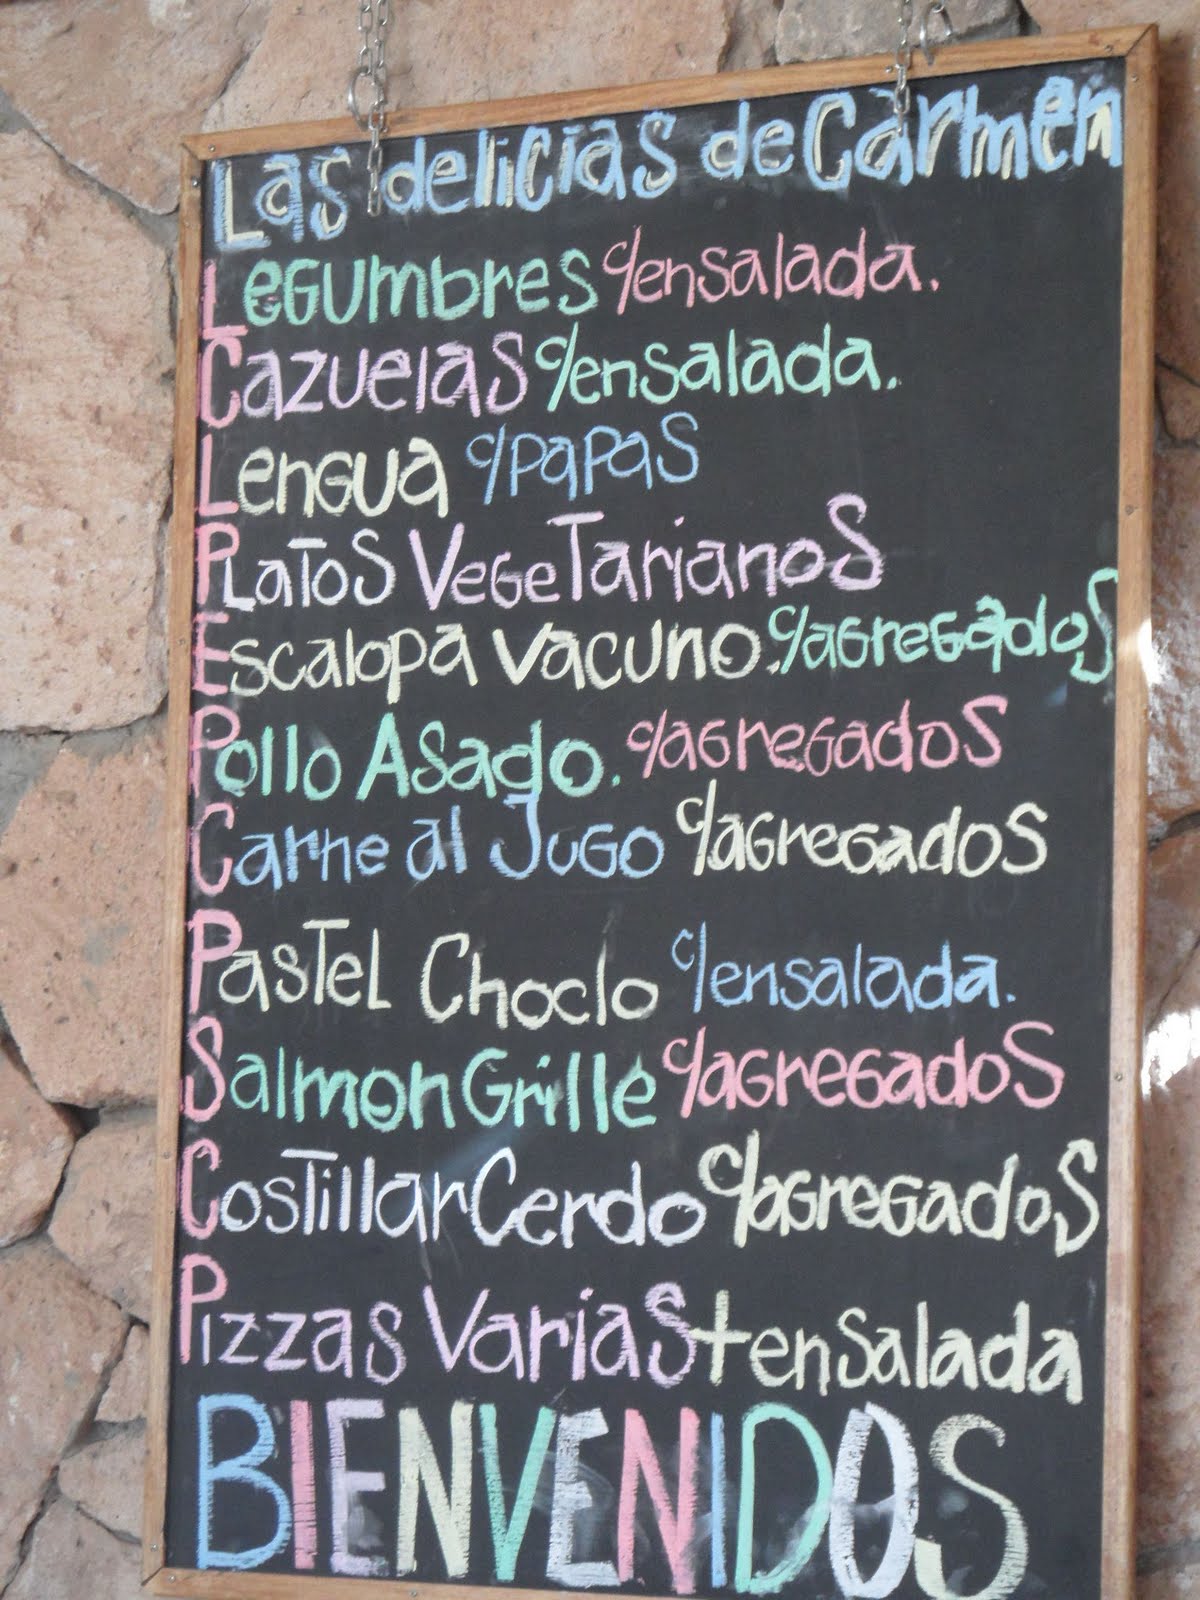 Las delicias de Carmen
Legumbres c/ensalada.
Cazuelas c/ensalada.
Lengua c/papas
Platos Vegetarianos
Escalopa vacuno. c/agregados
Pollo Asado. c/agregados
Carne al Jugo c/agregados
Pastel Choclo c/ensalada.
Salmon Grille c/agregados
Costillar Cerdo c/agregados
Pizzas Varias + ensalada
BIENVENIDOS